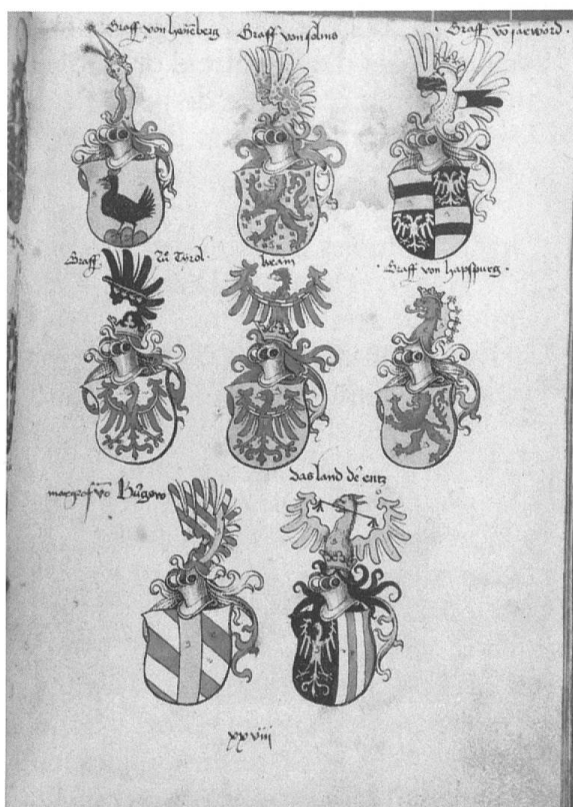 Graff von henēberg
Graff von solms
Graff vō
Graff zů Tyrol
krain
Graff von hapspurg
margraf vō Bůrgow
das land de entz
xxviii